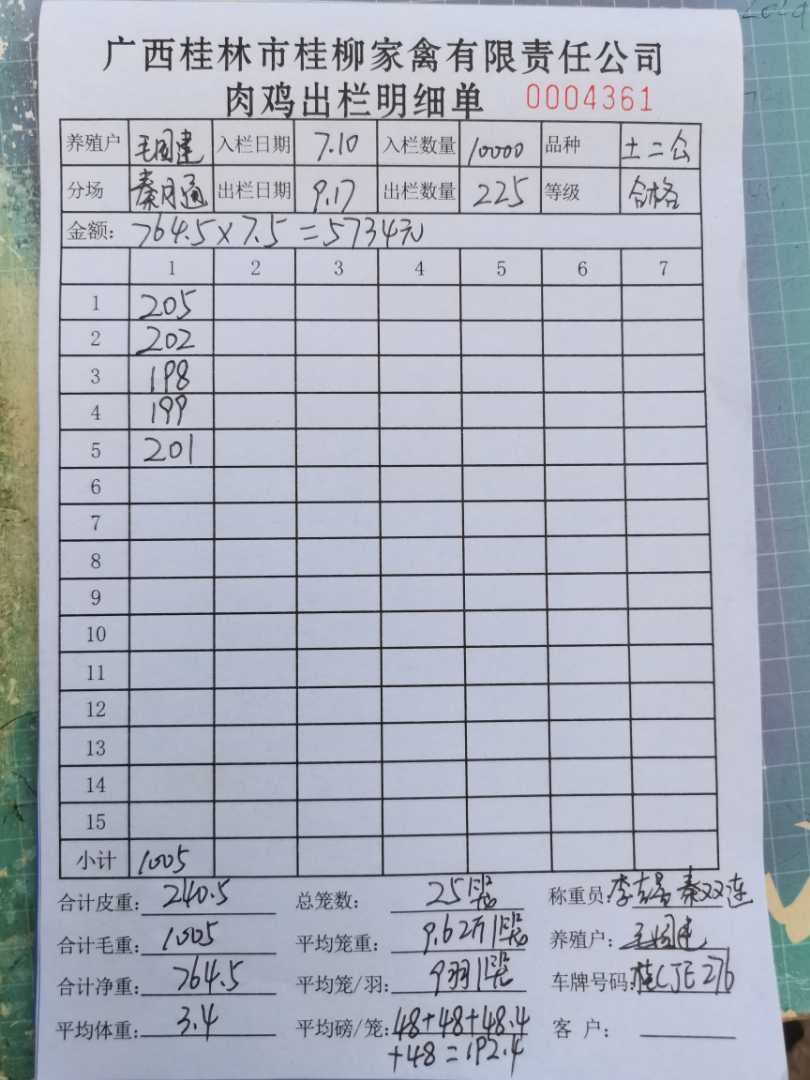 广西桂林市桂柳家禽有限责任公司
肉鸡出栏明细单 0004361
养殖户 毛国建 入栏日期 7.10 入栏数量 10000 品种 土二公
分场 秦 出栏日期 9.17 出栏数量 225 等级 合格
金额: 764.5×7.5=5734元
1 2 3 4 5 6 7
1 205
2 202
3 198
4 199
5 201
6
7
8
9
10
11
12
13
14
15
小计 1005
合计皮重: 240.5 总笼数: 25 称重员: 李 秦双连
合计毛重: 1005 平均笼重: 9.62斤/ 养殖户: 毛国建
合计净重: 764.5 平均笼/羽: 9羽/ 车牌号码: 桂CJE276
平均体重: 3.4 平均磅/笼: 48+48+48.4 客户:
+48=192.4